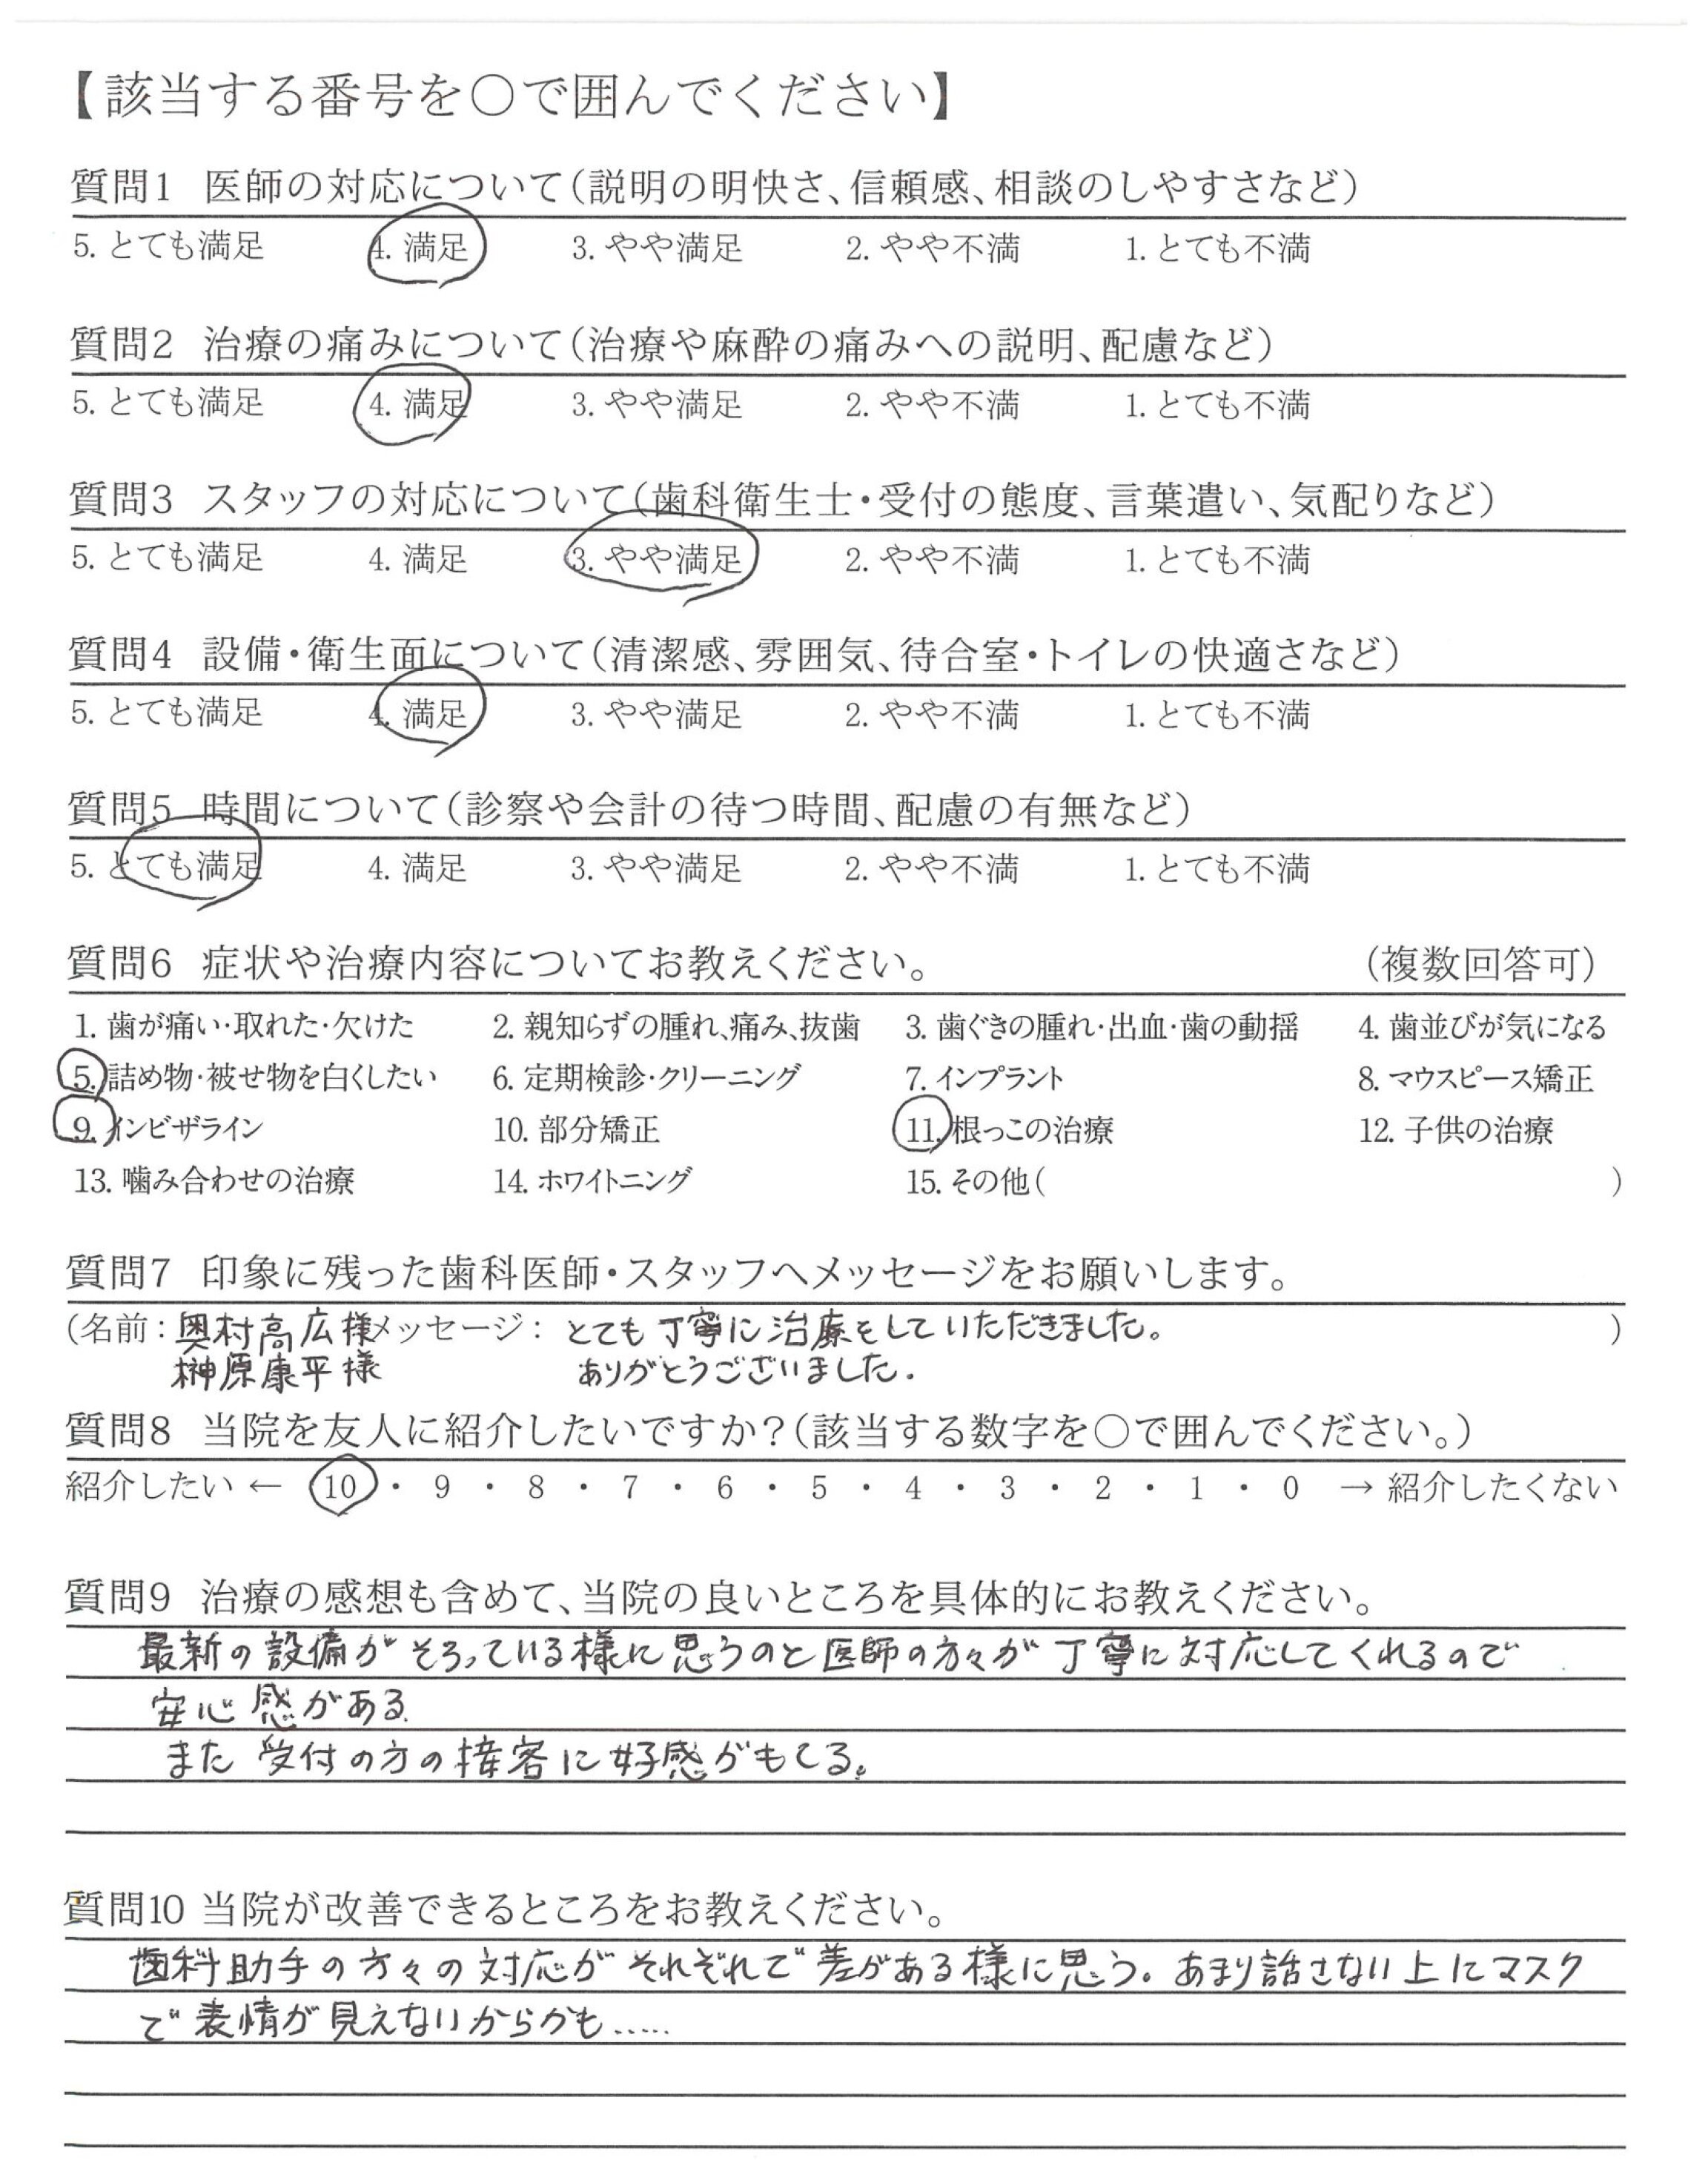 【該当する番号を○で囲んでください】
質問1 医師の対応について(説明の明快さ、信頼感、相談のしやすさなど)
5. とても満足 4. 満足 3. やや満足 2. やや不満 1. とても不満
質問2 治療の痛みについて(治療や麻酔の痛みへの説明、配慮など)
5. とても満足 4. 満足 3. やや満足 2. やや不満 1. とても不満
質問3 スタッフの対応について(歯科衛生士・受付の態度、言葉遣い、気配りなど)
5. とても満足 4. 満足 3. やや満足 2. やや不満 1. とても不満
質問4 設備・衛生面について(清潔感、雰囲気、待合室・トイレの快適さなど)
5. とても満足 4. 満足 3. やや満足 2. やや不満 1. とても不満
質問5 時間について(診察や会計の待つ時間、配慮の有無など)
5. とても満足 4. 満足 3. やや満足 2. やや不満 1. とても不満
質問6 症状や治療内容についてお教えください。 (複数回答可)
1. 歯が痛い・取れた・欠けた 2. 親知らずの腫れ、痛み、抜歯 3. 歯ぐきの腫れ・出血・歯の動揺 4. 歯並びが気になる
5. 詰め物・被せ物を白くしたい 6. 定期検診・クリーニング 7. インプラント 8. マウスピース矯正
9. インビザライン 10. 部分矯正 11. 根っこの治療 12. 子供の治療
13. 噛み合わせの治療 14. ホワイトニング 15. その他( )
質問7 印象に残った歯科医師・スタッフへメッセージをお願いします。
(名前：奥村高広様メッセージ：とても丁寧に治療をしていただきました。 )
榊原康平様 ありがとうございました。
質問8 当院を友人に紹介したいですか？(該当する数字を○で囲んでください。)
紹介したい ← 10 ・ 9 ・ 8 ・ 7 ・ 6 ・ 5 ・ 4 ・ 3 ・ 2 ・ 1 ・ 0 → 紹介したくない
質問9 治療の感想も含めて、当院の良いところを具体的にお教えください。
最新の設備がそろっている様に思うのと医師の方々が丁寧に対応してくれるので
安心感がある
また受付の方の接客に好感がもてる。
質問10 当院が改善できるところをお教えください。
歯科助手の方々の対応がそれぞれで差がある様に思う。あまり話さない上にマスク
で表情が見えないからかも.....